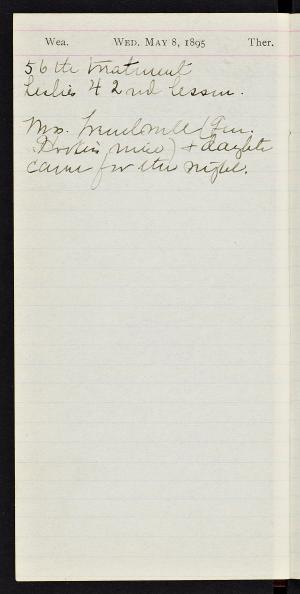 Wea. WED. MAY 8, 1895 Ther.
56th treatment
Leslie's 42nd lesson.
Mrs. (Gen.
niece) & daughter
came for the night.